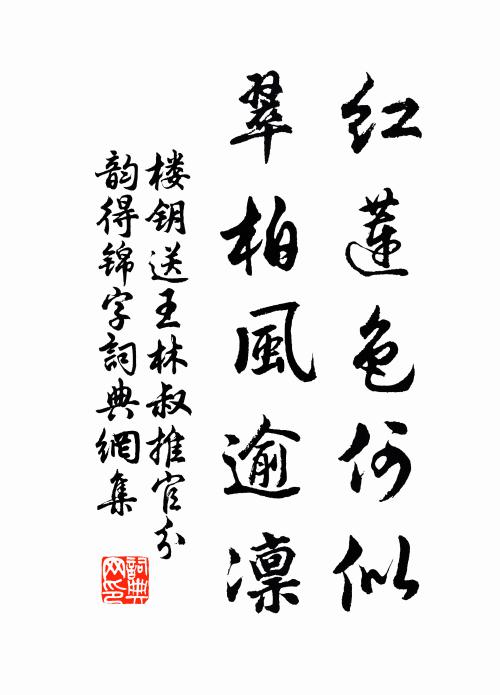 红蓮色何似
翠柏風逾凜
楼钥送王林叔推官分
韵得锦字詞典網集
詞典網印